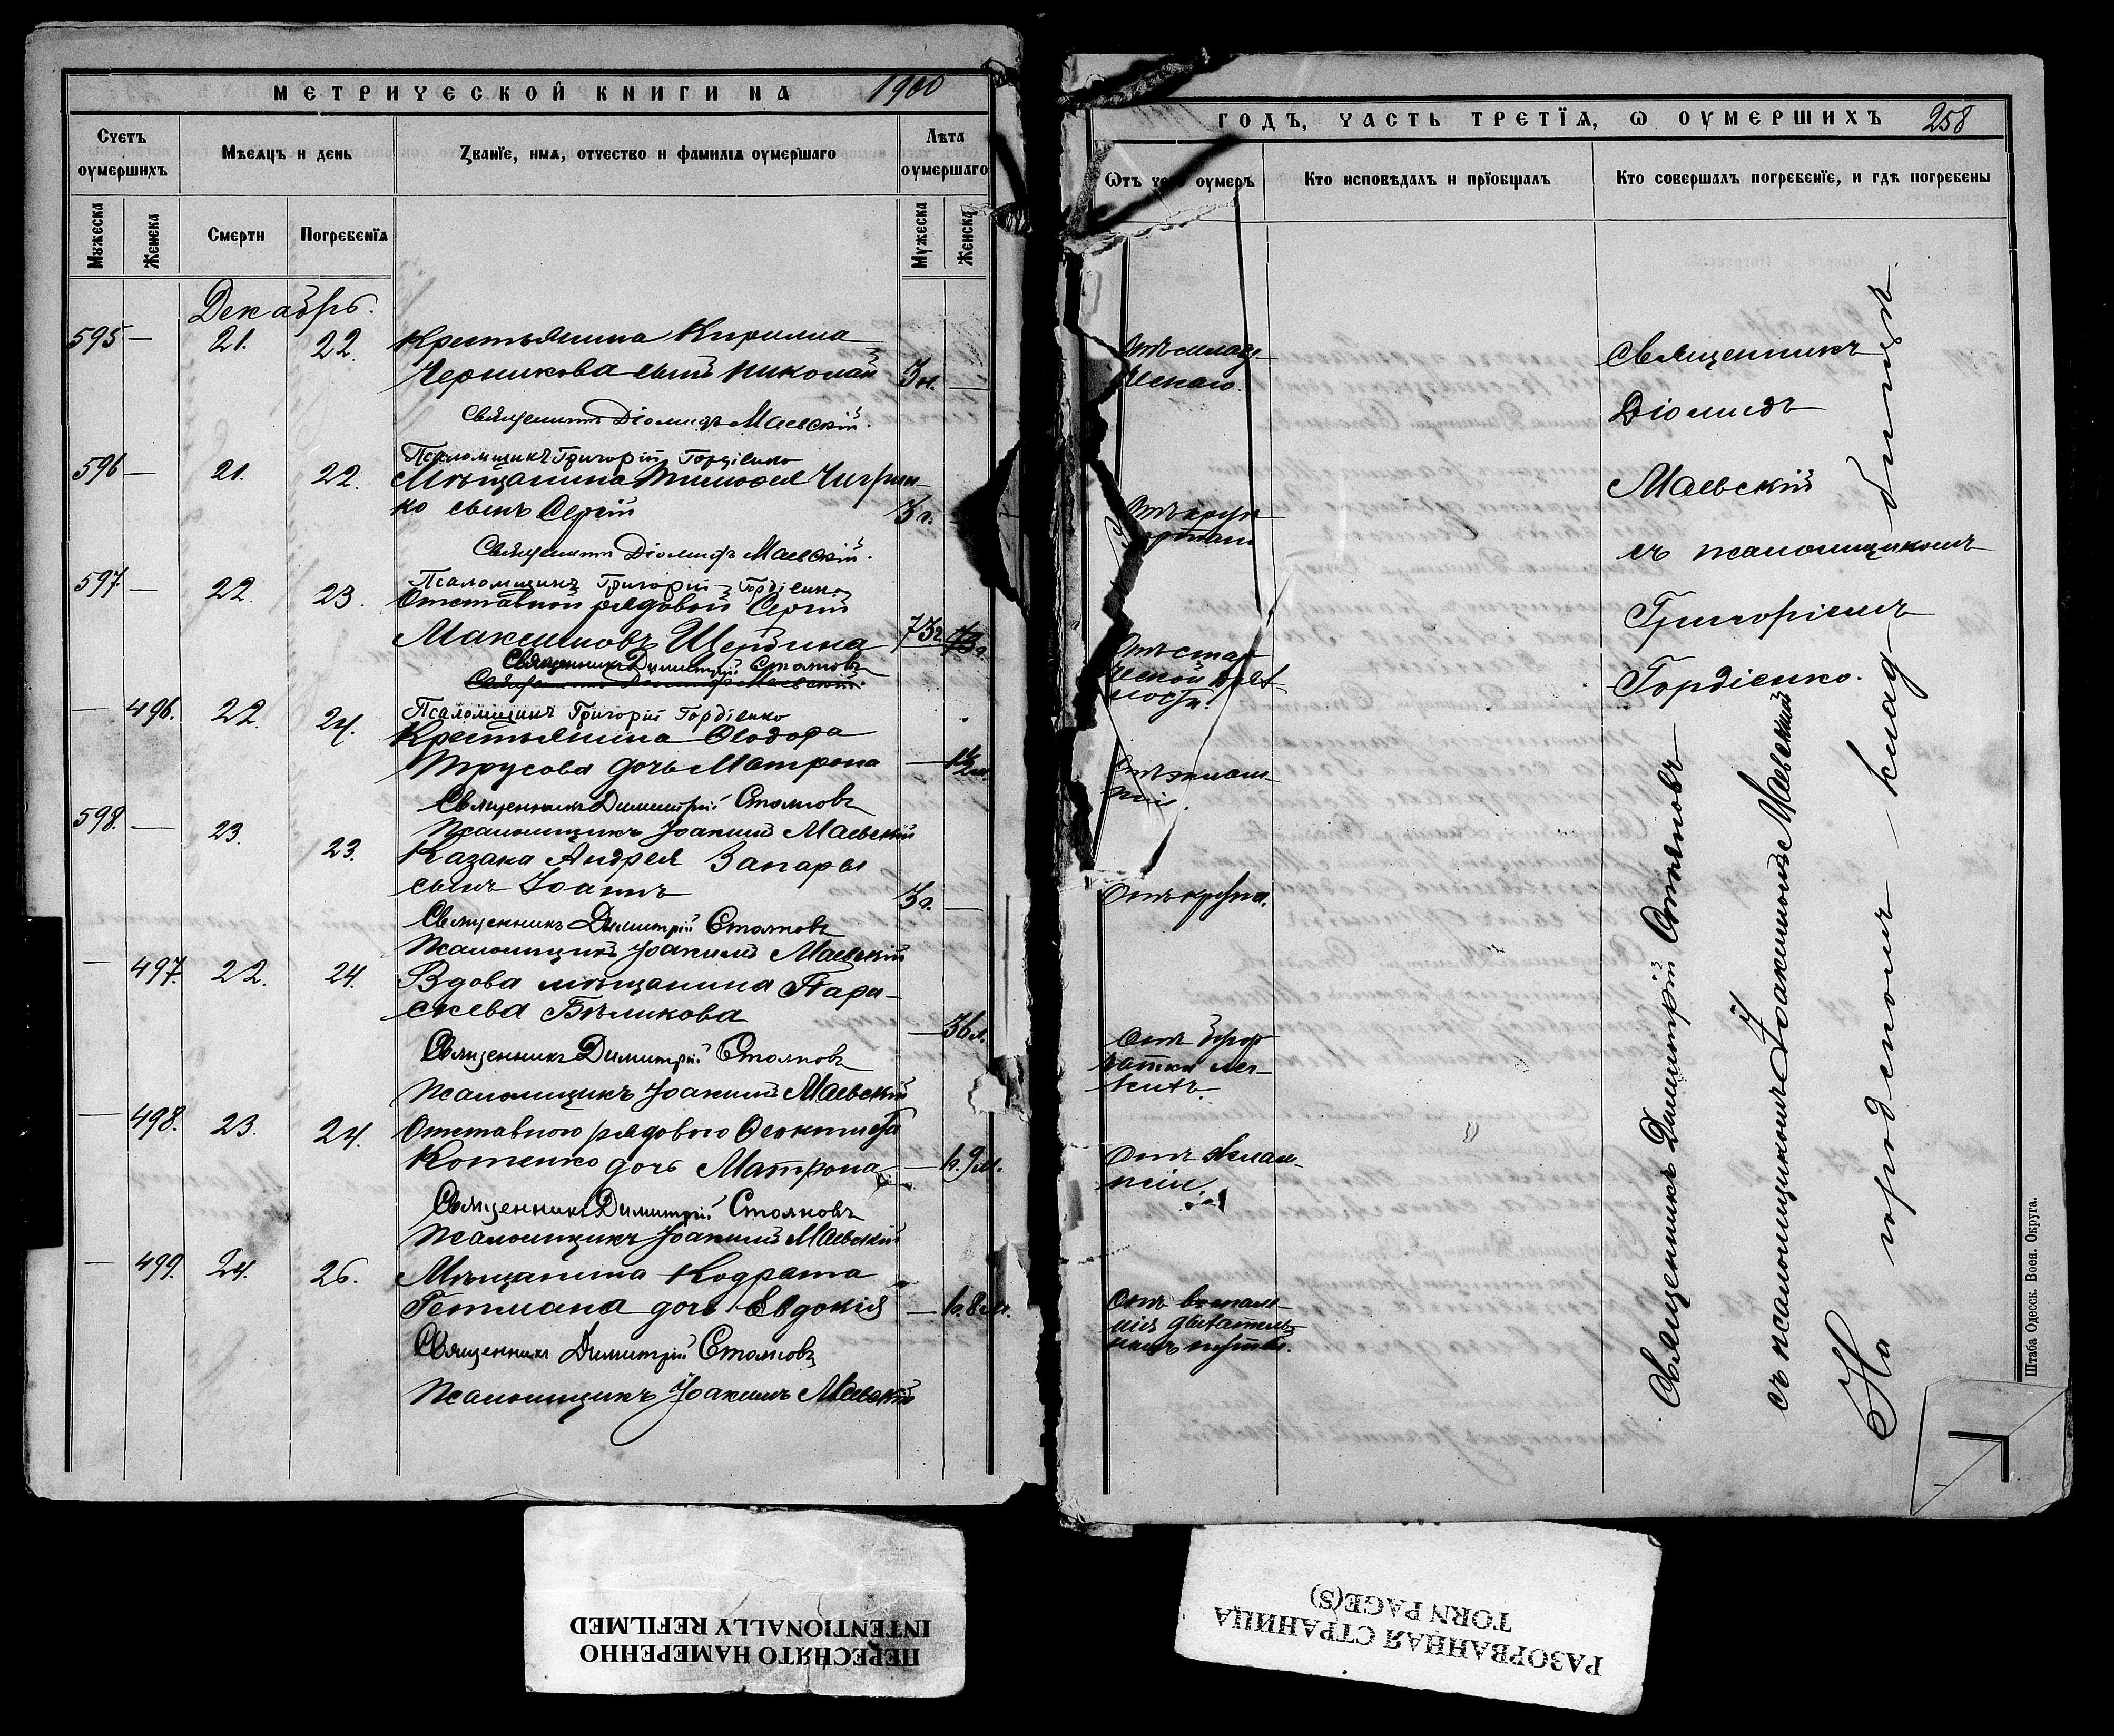 МЕТРИЧЕСКОЙ КНИГИ НА 1900
Счетъ оумершихъ
Мѣсяцъ и день
Званїе, имя, отчество и фамилїя оумершаго
Лѣта оумершаго
Мужеска
Женска
Смерти
Погребенїя
Мужеска
Женска
Декабрь.
595 — 21. 22. Крестьянина Кирилла
Черникова сынъ Николай 3 н. —
Священникъ Діомидъ Маевскій.
Псаломщикъ Григорій Гордіенко
596 — 21. 22. Мѣщанина Тимофея Чигрин-
ко сынъ Сергій 3 г.
Священникъ Діомидъ Маевскій.
Псаломщикъ Григорій Гордіенко
597 — 22. 23. Отставной рядовой Сергій
Максимовъ Щербина 73 г.
Священникъ Димитрій Стояновъ
Священникъ Діомидъ Маевскій.
Псаломщикъ Григорій Гордіенко
— 496. 22. 24. Крестьянина Ѳеодора
Трусова дочь Матрона —
Священникъ Димитрій Стояновъ
Псаломщикъ Іоакимъ Маевскій
598. — 23. 23. Казака Андрея Запары
сынъ Іоаннъ 3 г. —
Священникъ Димитрій Стояновъ
Псаломщикъ Іоакимъ Маевскій
— 497. 22. 24. Вдова мѣщанина Пара-
скева Бѣликова — 36 л.
Священникъ Димитрій Стояновъ
Псаломщикъ Іоакимъ Маевскій
— 498. 23. 24. Отставного рядового Ѳеоктиста
Котенко дочь Матрона — 1 г. 9 м.
Священникъ Димитрій Стояновъ
Псаломщикъ Іоакимъ Маевскій
— 499. 24. 26. Мѣщанина Кодрата
Гетмана дочь Евдокія — 1 г. 8 м.
Священникъ Димитрій Стояновъ
Псаломщикъ Іоакимъ Маевскій
ГОДЪ, ЧАСТЬ ТРЕТЇЯ, Ѡ ОУМЕРШИХЪ 258
Ѿтъ чего оумеръ
Кто исповѣдалъ и прїобщалъ
Кто совершалъ погребенїе, и гдѣ погребены
Отъ млад
ческаго.
Отъ круп
Отъ стар
ческой дрях-
лости.
Отъ эклам-
псіи.
Отъ крупа.
Отъ
легкихъ.
Отъ эклам-
псіи.
Отъ воспале-
нія дыхатель-
ныхъ путей.
Священникъ
Діомидъ
Маевскій
съ псаломщикомъ
Григоріемъ
Гордіенко.
Священникъ Димитрій Стояновъ
съ псаломщикомъ Іоакимомъ Маевскимъ
На городскомъ клад-
бищѣ
Штаба Одесск. Воен. Округа.
ПЕРЕСНЯТО НАМЕРЕННО
INTENTIONALLY REFILMED
РАЗОРВАННАЯ СТРАНИЦА
TORN PAGE(S)